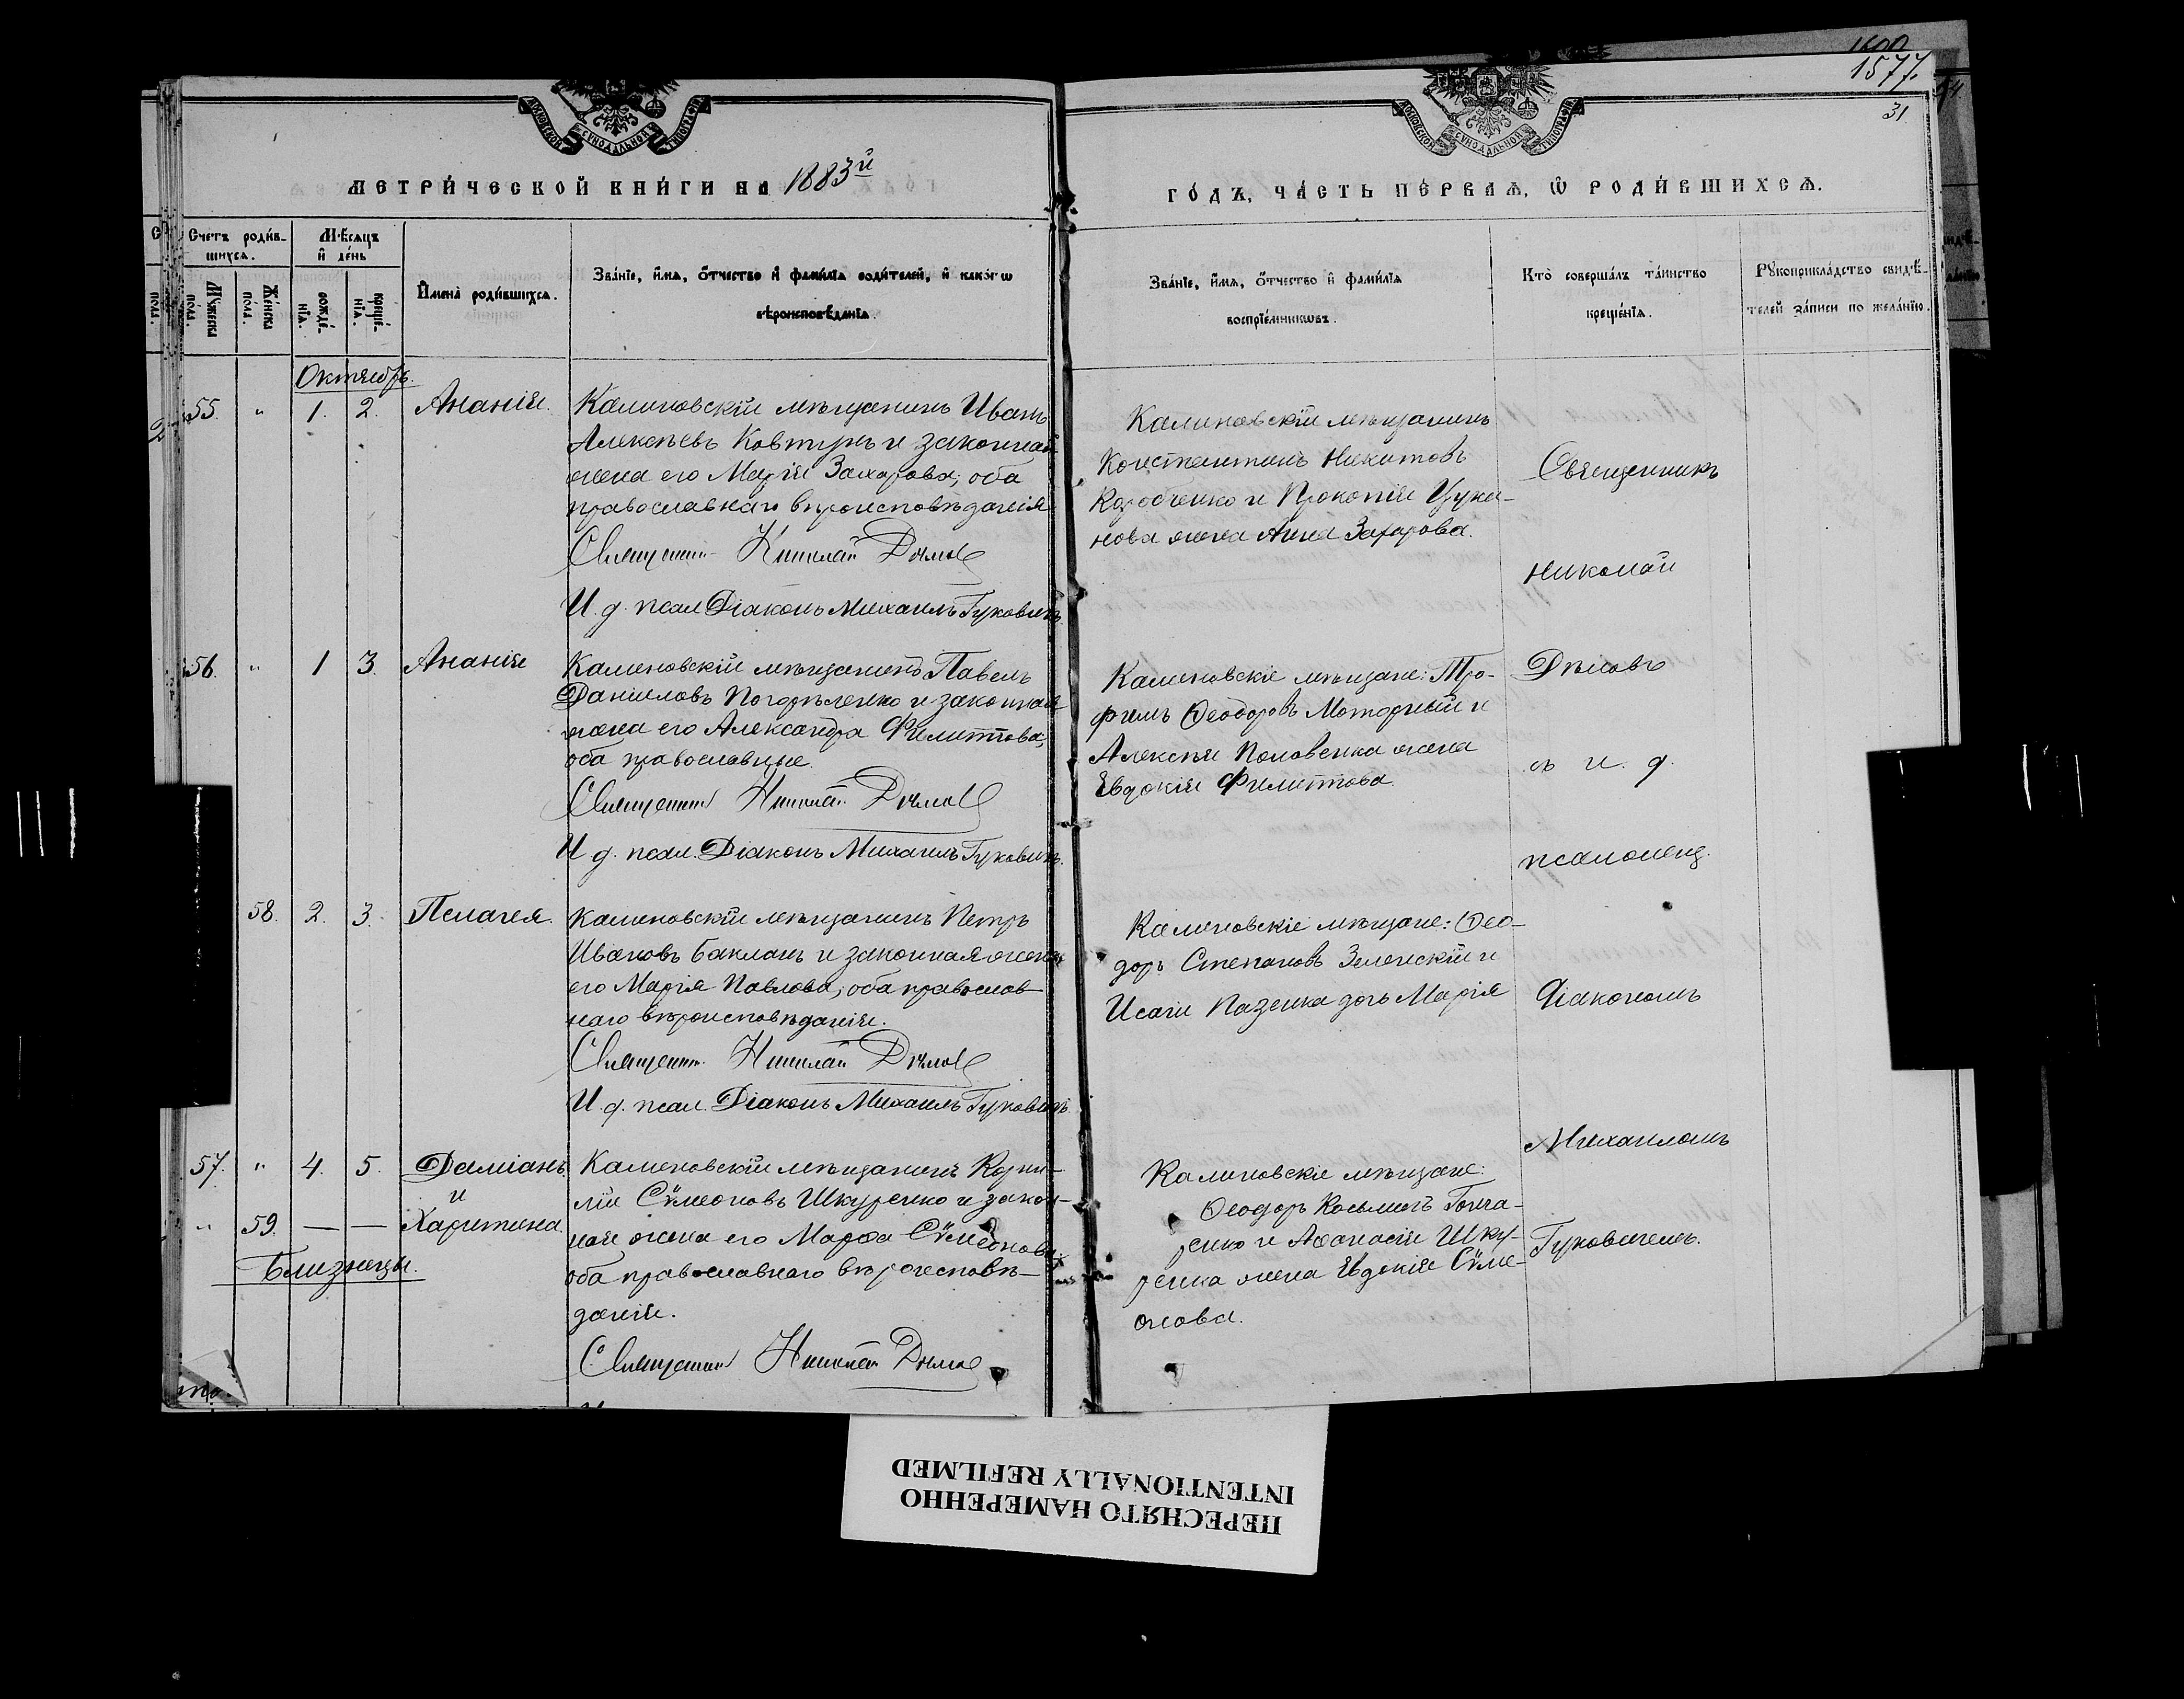 1577.
31
МОСКОВСКОЙ СѴНОДАЛЬНОЙ ТИПОГРАФІИ
МОСКОВСКОЙ СѴНОДАЛЬНОЙ ТИПОГРАФІИ
МЕТРИ́ЧЕСКОЙ КНИ́ГИ НА 1883й
ГО́ДЪ, ЧА́СТЬ ПЕ́РВАѦ, Ѡ РОДИ́ВШИХСѦ.
Счетъ роди́вшихсѧ.
Мꙋ́жеска пола̀.
Же́нска пола̀.
Мѣ́сѧцъ и҆ де́нь
рожде́нїѧ.
креще́нїѧ.
И҆мена̀ роди́вшихсѧ.
Зва́нїе, и҆́мѧ, ѻ҆́тчество и҆ фами́лїѧ роди́телей, и҆ како́гѡ
вѣроисповѣ́данїѧ.
Зва́нїе, и҆́мѧ, ѻ҆́тчество и҆ фами́лїѧ
воспрїе́мникѡвъ.
Кто̀ соверша́лъ та́инство
креще́нїѧ.
Рꙋкоприкла́дство свидѣ́-
телей за́писи по жела́нїю.
Октябрь.
55. " 1. 2. Ананія.
Калиновскій мѣщанинъ Иванъ
Алексѣевъ Ковтунъ и законная
жена его Марія Захарова, оба
православнаго вѣроисповѣданія
Священникъ Николай Дѣмовъ
И. д. псал. Діаконъ Михаилъ Гуковичъ.
Калиновскій мѣщанинъ
Константинъ Никитовъ
Коробченко и Прокопія Цука-
нова жена Анна Захарова.
56. " 1 3. Ананія
Калиновскій мѣщанинъ Павелъ
Даниловъ Погорѣленко и законная
жена его Александра Филиппова,
оба православные.
Священникъ Николай Дѣмовъ
И. д. псал. Діаконъ Михаилъ Гуковичъ.
Калиновскіе мѣщане: Тро-
фимъ Ѳеодоровъ Моторный и
Алексѣя Половенка жена
Евдокія Филиппова.
58. 2. 3. Пелагея.
Калиновскій мѣщанинъ Петръ
Ивановъ Бакланъ и законная жена
его Марія Павлова, оба православ-
наго вѣроисповѣданія.
Священникъ Николай Дѣмовъ
И. д. псал. Діаконъ Михаилъ Гуковичъ
Калиновскіе мѣщане: Ѳео-
доръ Степановъ Зеленскій и
Исаіи Пазенка дочь Марія
57. " 4. 5. Даміанъ
и
" 59. — — Харитина
Близнецы.
Калиновскій мѣщанинъ Корни-
лій Сѵмеоновъ Шкуренко и закон-
ная жена его Марѳа Сѵмеонова
оба православнаго вѣроисповѣ-
данія.
Священникъ Николай Дѣмовъ
Калиновскіе мѣщане:
Ѳеодоръ Косьминъ Гонча-
ренко и Аѳанасія Шку-
ренка жена Евдокія Сѵме-
онова.
Священникъ
Николай
Дѣмовъ
съ и. д.
псаломщ.
Діакономъ
Михаиломъ
Гуковичемъ.
ПЕРЕСНЯТО НАМЕРЕННО
INTENTIONALLY REFILMED